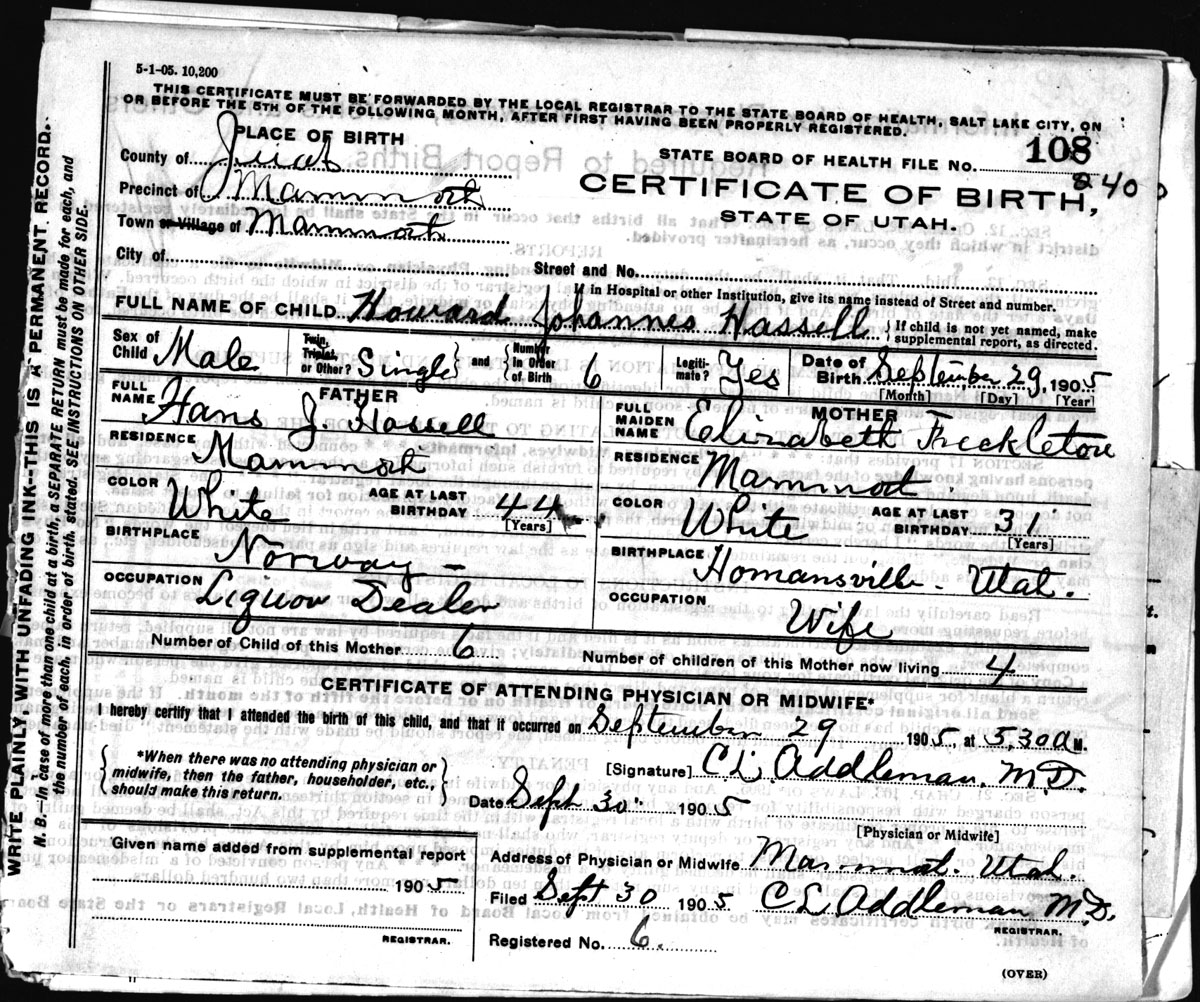 5-1-05. 10,200
THIS CERTIFICATE MUST BE FORWARDED BY THE LOCAL REGISTRAR TO THE STATE BOARD OF HEALTH, SALT LAKE CITY, ON
OR BEFORE THE 5TH OF THE FOLLOWING MONTH, AFTER FIRST HAVING BEEN PROPERLY REGISTERED.
PLACE OF BIRTH
STATE BOARD OF HEALTH FILE No. 108
240
County of Juab
CERTIFICATE OF BIRTH,
Precinct of Mammoth
STATE OF UTAH.
Town or Village of Mammoth
City of
Street and No.
If in Hospital or other Institution, give its name instead of Street and number.
FULL NAME OF CHILD Howard Johannes Hassell { If child is not yet named, make
supplemental report, as directed.
Sex of Child Male
Twin, Triplet, or Other? Single } and { Number In Order of Birth 6
Legitimate? Yes
Date of Birth September 29, 1905
[Month] [Day] [Year]
FATHER
FULL NAME Hans J Hassell
RESIDENCE Mammoth
COLOR White
AGE AT LAST BIRTHDAY 44
[Years]
BIRTHPLACE Norway -
OCCUPATION Liquor Dealer
MOTHER
FULL MAIDEN NAME Elizabeth Freckleton
RESIDENCE Mammoth.
COLOR White
AGE AT LAST BIRTHDAY 31
[Years]
BIRTHPLACE Homansville - Utah.
OCCUPATION Wife
Number of Child of this Mother 6
Number of children of this Mother now living 4
CERTIFICATE OF ATTENDING PHYSICIAN OR MIDWIFE*
I hereby certify that I attended the birth of this child, and that it occurred on September 29 1905 at 5,30 a M.
{ *When there was no attending physician or
midwife, then the father, householder, etc.,
should make this return. }
[Signature] C L Addleman, M.D.
Date Sept 30" 1905
[Physician or Midwife]
Given name added from supplemental report
1905
REGISTRAR.
Address of Physician or Midwife Mammoth. Utah.
Filed Sept 30 1905 C L Addleman, M.D.
REGISTRAR.
Registered No. 6.
(OVER)
WRITE PLAINLY, WITH UNFADING INK--THIS IS A PERMANENT RECORD.
N. B.--In case of more than one child at a birth, a SEPARATE RETURN must be made for each, and
the number of each, in order of birth, stated. SEE INSTRUCTIONS ON OTHER SIDE.